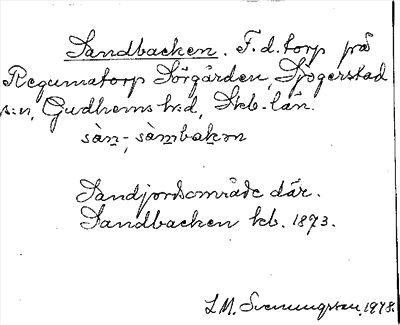 Sandbacken. F.d. torp på
Regumatorp Sörgården, Sjögerstad
s:n, Gudhems hd, Skb. län.
sàn-, sàmbakɷn
Sandjordsområde där.
Sandbacken kb. 1873.
L.M. Svenungsson, 1978.